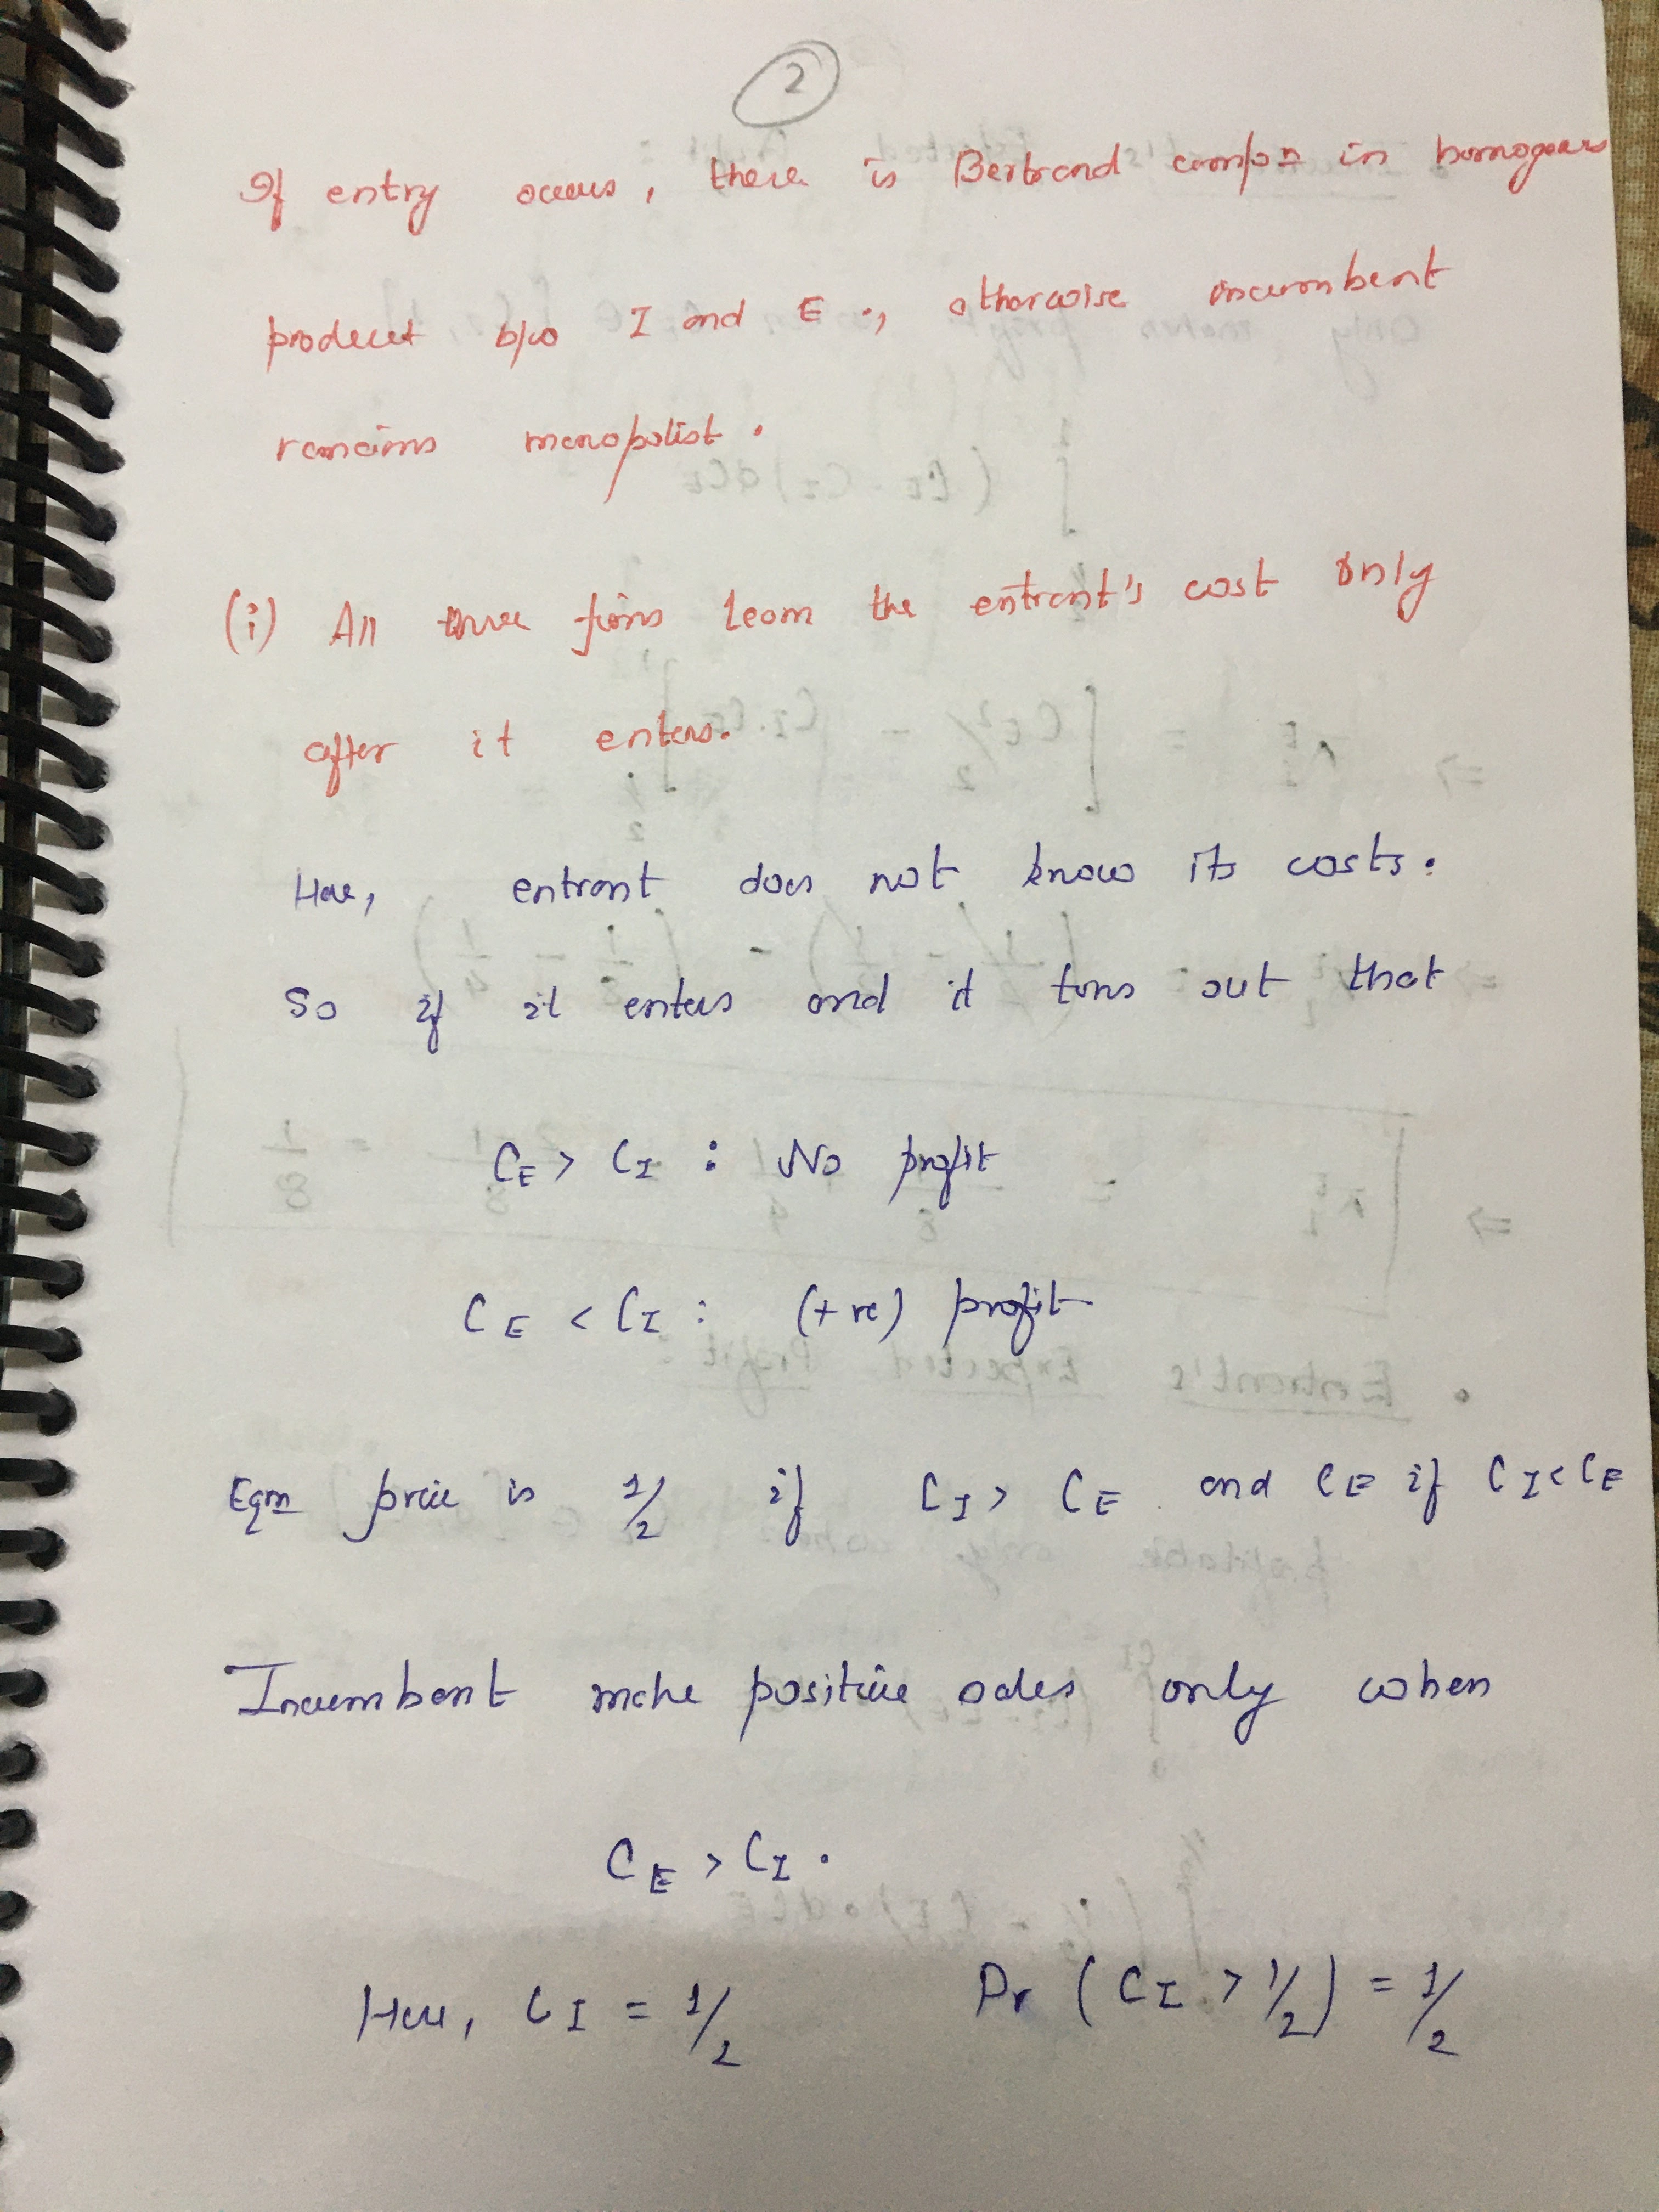 2
If entry occurs, there is Bertrand comp⁠n in homogeous
product b/w I and E ., otherwise incumbent
remains monopolist.
(i) All three firms learn the entrant's cost only
after it enters.
Here, entrant does not know its costs.
So if it enters and it turns out that
C_E > C_I : No profit
C_E < C_I : (+ve) profit
Eqm price is 1/2 if C_I > C_E and C_E if C_I < C_E
Incumbent make positive sales only when
C_E > C_I .
Here, C_I = 1/2 Pr (C_I > 1/2) = 1/2